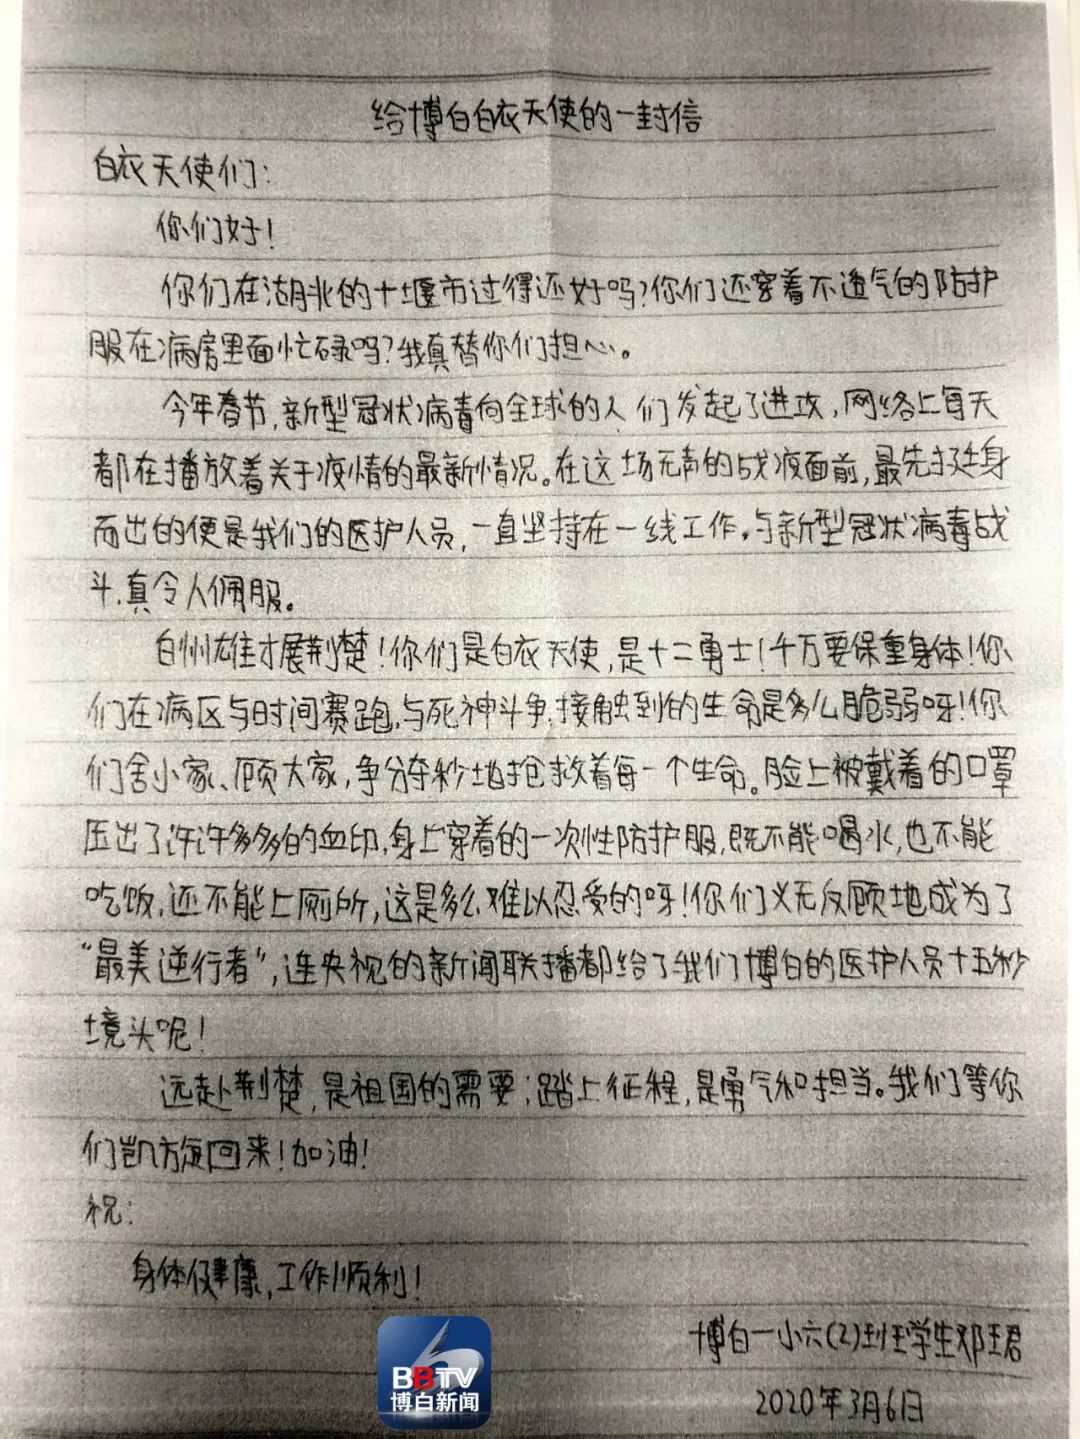 给博白白衣天使的一封信
白衣天使们：
你们好！
你们在湖北的十堰市过得还好吗？你们还穿着不透气的防护
服在病房里面忙碌吗？我真替你们担心。
今年春节，新型冠状病毒向全球的人们发起了进攻，网络上每天
都在播放着关于疫情的最新情况。在这场无声的战疫面前，最先挺身
而出的便是我们的医护人员，一直坚持在一线工作。与新型冠状病毒战
斗，真令人佩服。
白州雄才展荆楚！你们是白衣天使，是十二勇士！千万要保重身体！你
们在病区与时间赛跑，与死神斗争，接触到的生命是多么脆弱呀！你
们舍小家、顾大家，争分夺秒地抢救着每一个生命。脸上被戴着的口罩
压出了许许多多的血印，身上穿着的一次性防护服，既不能喝水，也不能
吃饭，还不能上厕所，这是多么难以忍受的呀！你们义无反顾地成为了
“最美逆行者”，连央视的新闻联播都给了我们博白的医护人员十五秒
境头呢！
远赴荆楚，是祖国的需要；踏上征程，是勇气和担当。我们等你
们凯旋回来！加油！
祝：
身体健康，工作顺利！
博白一小六(2)班学生邓王君
2020年3月6日
BBTV
博白新闻